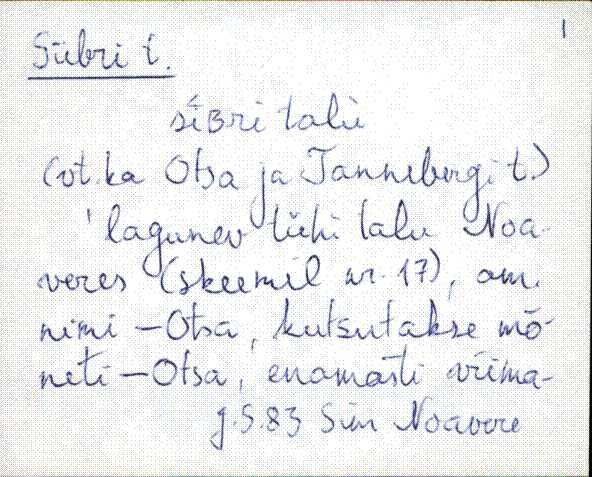 1
Siibri t.
síʙri talu
(vt. ka Otsa ja Tannebergi t.)
'lagunev tühi talu Noa-
veres (skeemil nr. 17), am.
nimi – Otsa, kutsutakse mõ-
neti – Otsa, enamasti viima-
J.S. 83 Sim Noavere